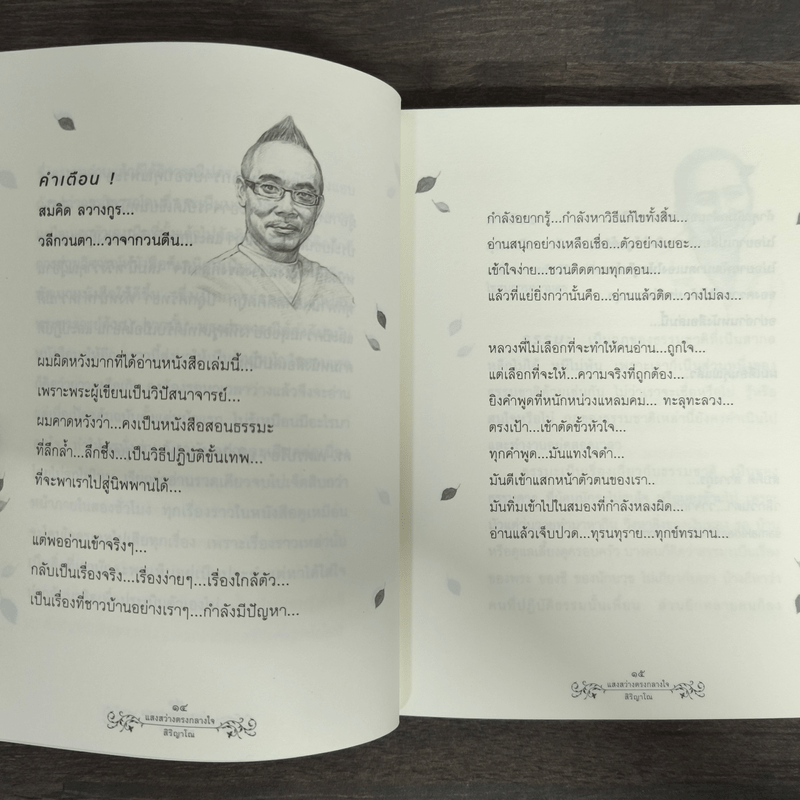 คำเตือน !
สมคิด ลวางกูร...
วลีกวนตา...วาจากวนตีน...
ผมผิดหวังมากที่ได้อ่านหนังสือเล่มนี้...
เพราะพระผู้เขียนเป็นวิปัสนาจารย์...
ผมคาดหวังว่า...คงเป็นหนังสือสอนธรรมะ
ที่ลึกล้ำ...ลึกซึ้ง...เป็นวิธีปฏิบัติขั้นเทพ...
ที่จะพาเราไปสู่นิพพานได้...
แต่พออ่านเข้าจริงๆ...
กลับเป็นเรื่องจริง...เรื่องง่ายๆ...เรื่องใกล้ตัว...
เป็นเรื่องที่ชาวบ้านอย่างเราๆ...กำลังมีปัญหา...
๑๔
แสงสว่างตรงกลางใจ
สิริญาโณ
กำลังอยากรู้...กำลังหาวิธีแก้ไขทั้งสิ้น...
อ่านสนุกอย่างเหลือเชื่อ...ตัวอย่างเยอะ...
เข้าใจง่าย...ชวนติดตามทุกตอน...
แล้วที่แย่ยิ่งกว่านั้นคือ...อ่านแล้วติด...วางไม่ลง...
หลวงพี่ไม่เลือกที่จะทำให้คนอ่าน...ถูกใจ...
แต่เลือกที่จะให้...ความจริงที่ถูกต้อง...
ยิงคำพูดที่หนักหน่วงแหลมคม... ทะลุทะลวง...
ตรงเป้า...เข้าตัดขั้วหัวใจ...
ทุกคำพูด...มันแทงใจดำ...
มันตีเข้าแสกหน้าตัวตนของเรา..
มันทิ่มเข้าไปในสมองที่กำลังหลงผิด...
อ่านแล้วเจ็บปวด...ทุรนทุราย...ทุกข์ทรมาน...
๑๕
แสงสว่างตรงกลางใจ
สิริญาโณ